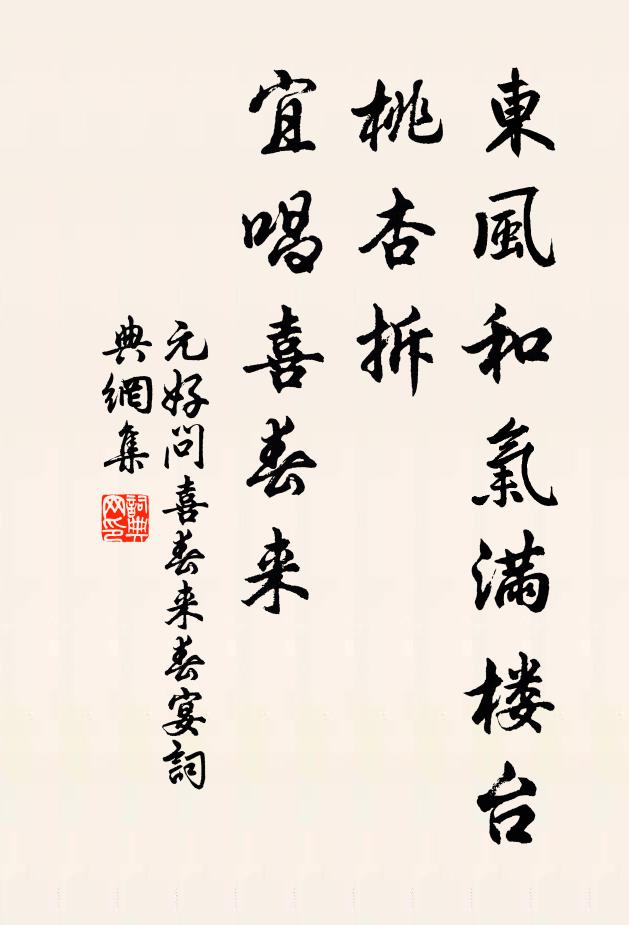 東風和氣满楼台
桃杏拆
宜唱喜春来
元好问喜春来春宴詞
典網集
詞典网印